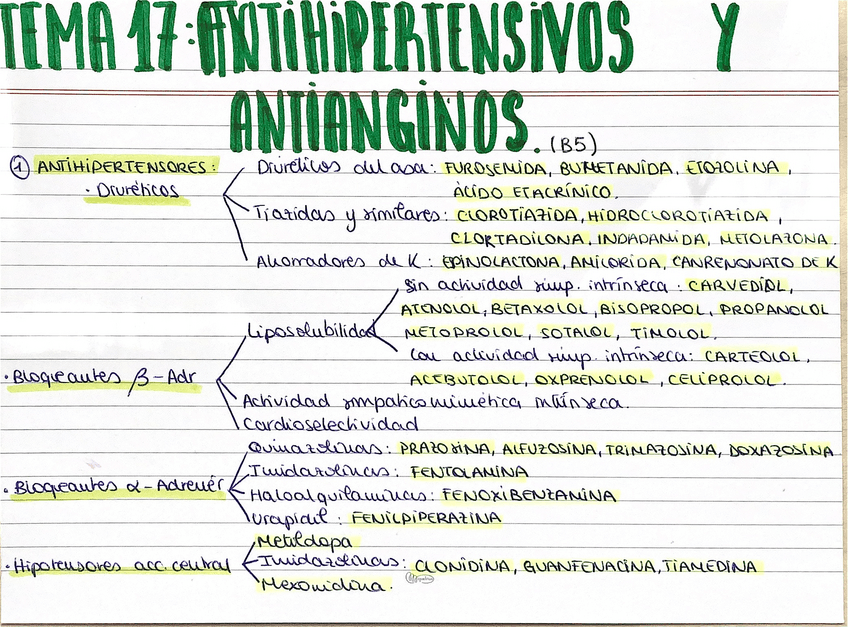 TEMA 17: ANTIHIPERTENSIVOS Y
ANTIANGINOS. (B5)
① ANTIHIPERTENSORES:
· Diuréticos
Diuréticos del asa: FUROSEMIDA, BUMETANIDA, ETOZOLINA,
ÁCIDO ETACRÍNICO.
Tiazidas y similares: CLOROTIAZIDA, HIDROCLOROTIAZIDA,
CLORTADILONA, INDADAMIDA, METOLAZONA.
Ahorradores de K: EPINOLACTONA, AMILORIDA, CANRENONATO DE K
· Bloqueantes β-Adr
Liposolubilidad
Sin actividad simp. intrínseca: CARVEDIOL,
ATENOLOL, BETAXOLOL, BISOPROPOL, PROPANOLOL
METOPROLOL, SOTALOL, TIMOLOL.
Con actividad simp. intrínseca: CARTEOLOL,
ACEBUTOLOL, OXPRENOLOL, CELIPROLOL.
Actividad simpaticomimética intrínseca.
Cardioselectividad
· Bloqueantes α-Adrenér
Quinazolinas: PRAZOSINA, ALFUZOSINA, TRIMAZOSINA, DOXAZOSINA
Imidazolinas: FENTOLAMINA
Haloalquilaminas: FENOXIBENZAMINA
Urapidil: FENILPIPERAZINA
· Hipotensores acc. central
Metildopa
Imidazolinas: CLONIDINA, GUANFENACINA, TIAMEDINA
Mexonidina.